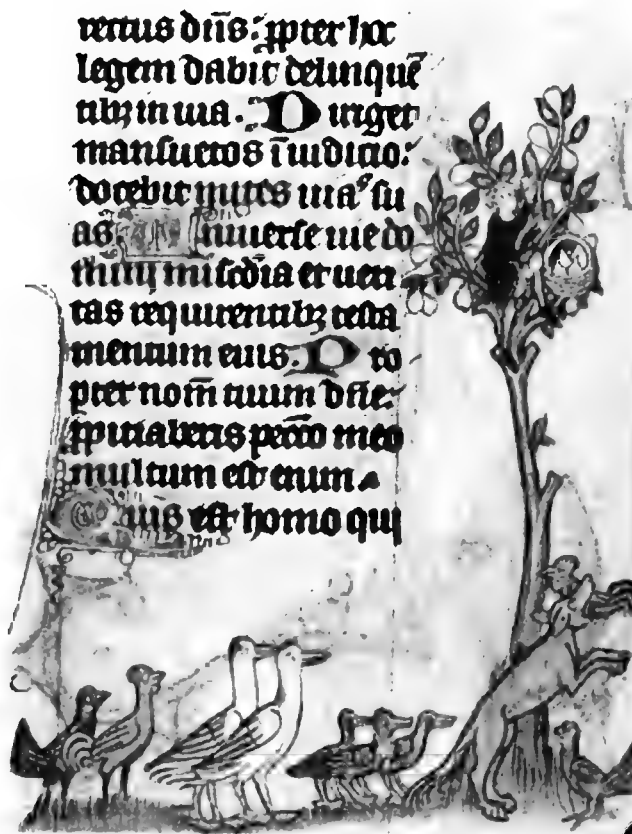 rectus dn̄s: ꝓpter hoc
legem dabit delinquē
tibꝫ in uia. Diriget
mansuetos ī iudicio:
docebit mites uias su
as. Vniuerse uie do
mini mīscdīa et ueri
tas requirentibꝫ testa
mentum eius. Pro
pter nom̄ tuum dn̄e:
ꝓpitiaberis pecc̄o meo
multum est enim.
Quis est homo qui